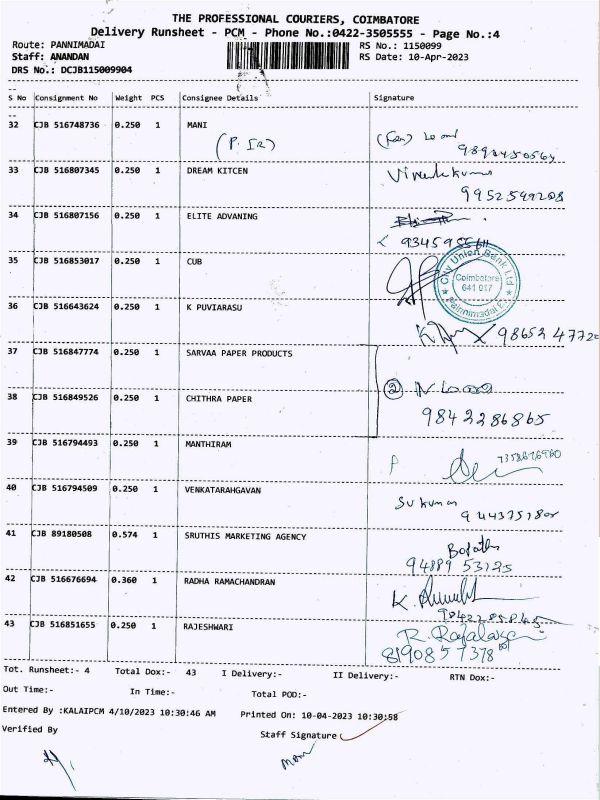 THE PROFESSIONAL COURIERS, COIMBATORE
Delivery Runsheet - PCM - Phone No.:0422-3505555 - Page No.:4
Route: PANNIMADAI RS No.: 1150099
Staff: ANANDAN RS Date: 10-Apr-2023
DRS No.: DCJB115009904
S No Consignment No Weight PCS Consignee Details Signature
32 CJB 516748736 0.250 1 MANI
33 CJB 516807345 0.250 1 DREAM KITCEN
9952549208
34 CJB 516807156 0.250 1 ELITE ADVANING
35 CJB 516853017 0.250 1 CUB
City Union Bank Ltd
Coimbatore
641 017
36 CJB 516643624 0.250 1 K PUVIARASU
37 CJB 516847774 0.250 1 SARVAA PAPER PRODUCTS
2
38 CJB 516849526 0.250 1 CHITHRA PAPER
9842286865
39 CJB 516794493 0.250 1 MANTHIRAM
40 CJB 516794509 0.250 1 VENKATARAHGAVAN
Sukumar
41 CJB 89180508 0.574 1 SRUTHIS MARKETING AGENCY
94889 53125
42 CJB 516676694 0.360 1 RADHA RAMACHANDRAN
43 CJB 516851655 0.250 1 RAJESHWARI
8190857378
Tot. Runsheet:- 4 Total Dox:- 43 I Delivery:- II Delivery:- RTN Dox:-
Out Time:- In Time:- Total POD:-
Entered By :KALAIPCM 4/10/2023 10:30:46 AM Printed On: 10-04-2023 10:30:58
Verified By Staff Signature